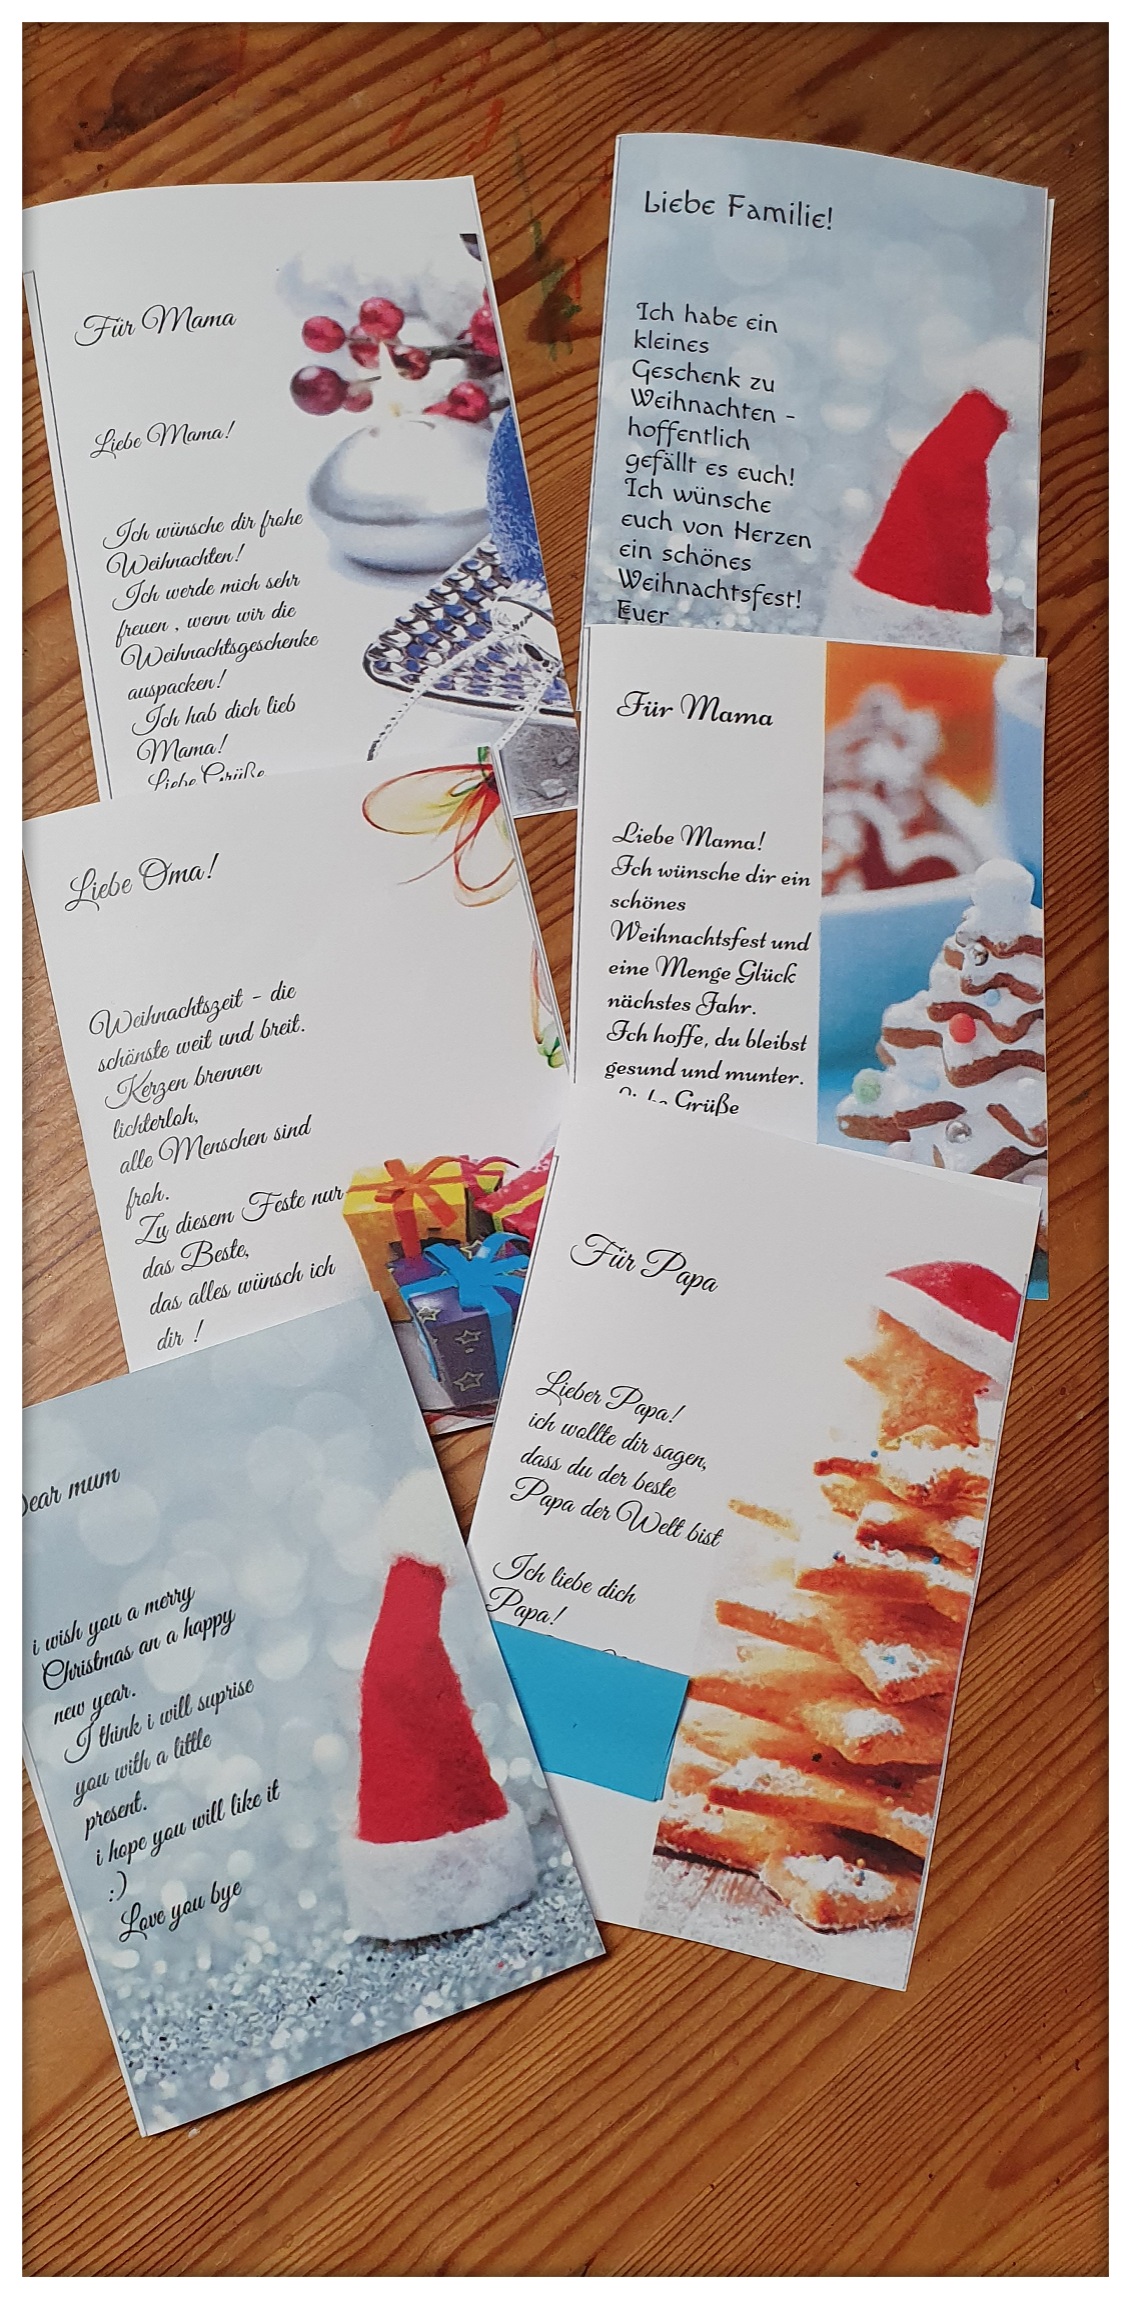 Für Mama
Liebe Mama!
Ich wünsche dir frohe
Weihnachten!
Ich werde mich sehr
freuen , wenn wir die
Weihnachtsgeschenke
auspacken!
Ich hab dich lieb
Mama!
Liebe Grüße
Liebe Familie!
Ich habe ein
kleines
Geschenk zu
Weihnachten -
hoffentlich
gefällt es euch!
Ich wünsche
euch von Herzen
ein schönes
Weihnachtsfest!
Euer
Liebe Oma!
Weihnachtszeit - die
schönste weit und breit.
Kerzen brennen
lichterloh,
alle Menschen sind
froh.
Zu diesem Feste nur
das Beste,
das alles wünsch ich
dir !
Für Mama
Liebe Mama!
Ich wünsche dir ein
schönes
Weihnachtsfest und
eine Menge Glück
nächstes Jahr.
Ich hoffe, du bleibst
gesund und munter.
Grüße
Für Papa
Lieber Papa!
ich wollte dir sagen,
dass du der beste
Papa der Welt bist
Ich liebe dich
Papa!
Dear mum
i wish you a merry
Christmas an a happy
new year.
I think i will suprise
you with a little
present.
i hope you will like it
:)
Love you bye